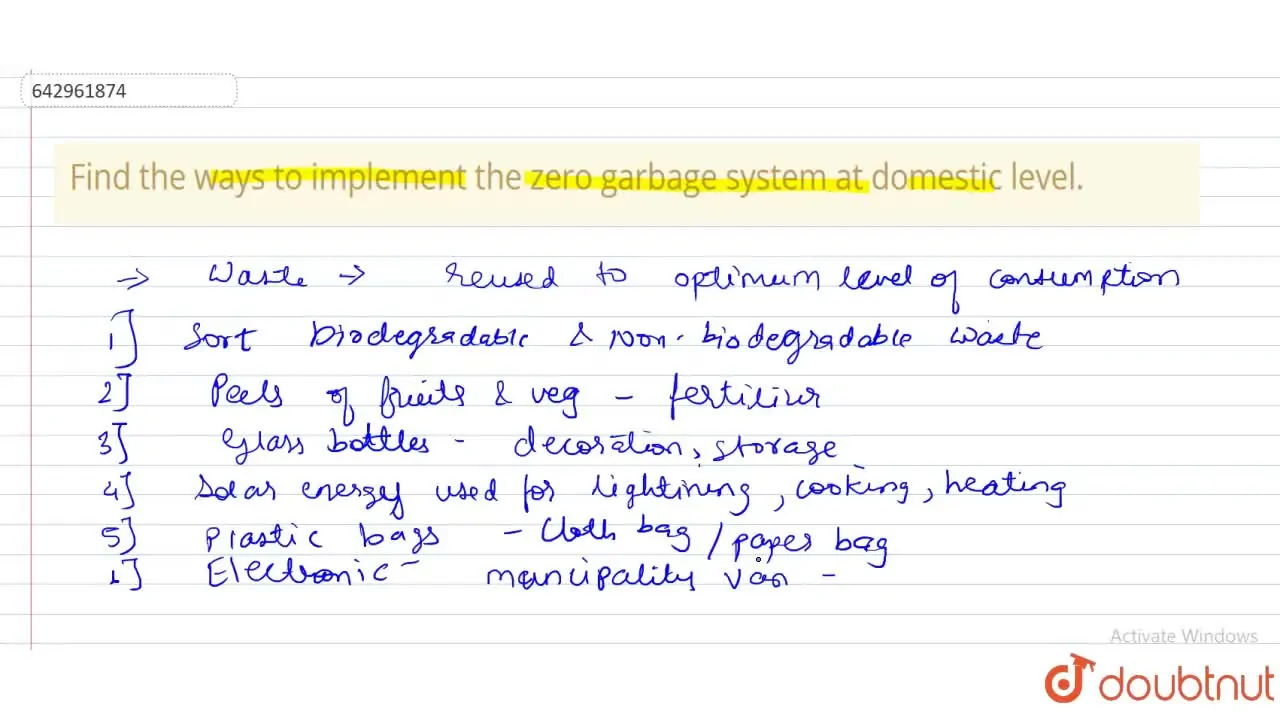 642961874
Find the ways to implement the zero garbage system at domestic level.
→ Waste → reused to optimum level of consumption
1] Sort biodegradable & non-biodegradable waste
2] Peels of fruits & veg - fertilizer
3] Glass bottles - decoration, storage
4] Solar energy used for lightining, cooking, heating
5] Plastic bags - Cloth bag / paper bag
6] Electronic - muncipality van -
Activate Windows
doubtnut